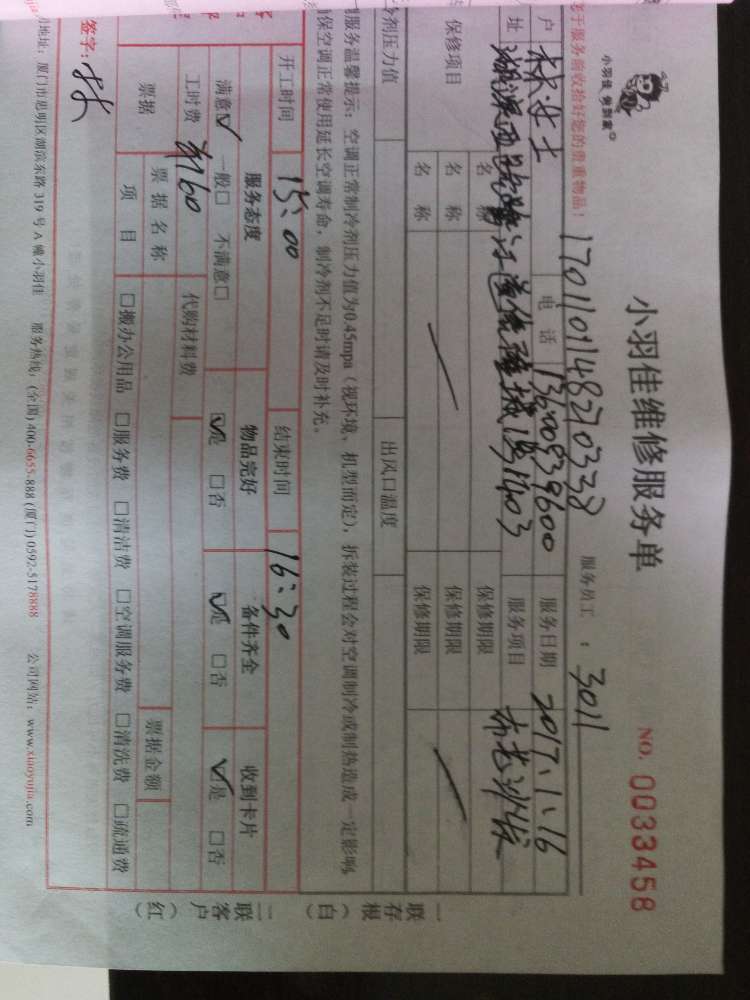 小羽佳 爸到家
小羽佳维修服务单
NO. 0033458
1701101148270338
服务员工 : 3011
于服务前收拾好您的贵重物品!
户 林女士 电话 13600839600 服务日期 2017.1.16
址 湖滨西路 1403 服务项目
保修项目 名称 保修期限
名称 保修期限
名称 保修期限
冷剂压力值 出风口温度
服务温馨提示:空调正常制冷剂压力值为0.45mpa(视环境、机型而定),拆装过程会对空调制冷或制热造成一定影响,
保空调正常使用延长空调寿命,制冷剂不足时请及时补充。
开工时间 15:00 结束时间 16:30
服务态度 物品完好 备件齐全 收到卡片
满意☑ 一般□ 不满意□ ☑是 □否 ☑是 □否 ☑是 □否
工时费 160 代购材料费
票据 票据名称 票据金额
项目 □搬办公用品 □服务费 □清洁费 □空调服务费 □清洗费 □疏通费
签字: 林
地址:厦门市思明区湖滨东路 319 号 A 幢小羽佳 服务热线:(全国) 400-6655-888 (厦门) 0592-5178888 公司网站:www.xiaoyujia.com
一联存根(白)
二联客户(红)